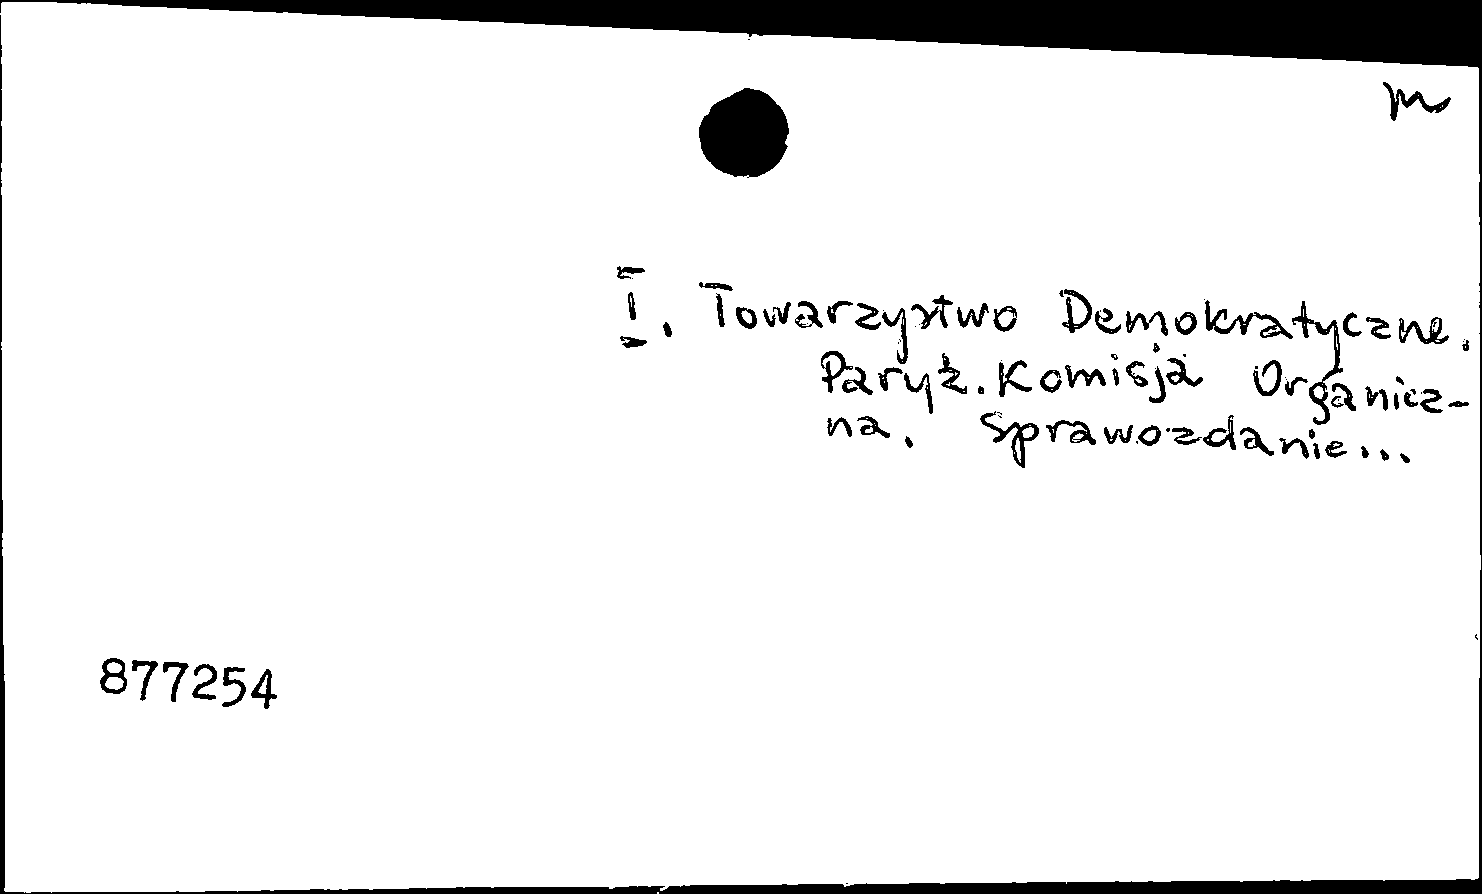 m
I. Towarzystwo Demokratyczne.
Paryż. Komisja Organicz-
na. Sprawozdanie...
877254